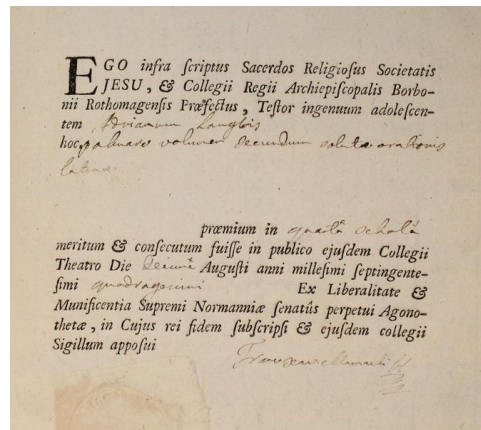 EGO infra ſcriptus Sacerdos Religioſus Societatis
JESU, & Collegii Regii Archiepiſcopalis Borbo-
nii Rothomagenſis Præfectus, Teſtor ingenuum adoleſcen-
tem Adrianum Langlois
hoc palmare volumen secundum solutæ orationis
latinæ
præmium in quartâ scholâ
meritum & conſecutum fuiſſe in publico ejuſdem Collegii
Theatro Die Auguſti anni milleſimi ſeptingente-
ſimi quadragesimi Ex Liberalitate &
Munificentia Supremi Normanniæ ſenatûs perpetui Agono-
thetæ, in Cujus rei fidem ſubſcripſi & ejuſdem collegii
Sigillum appoſui